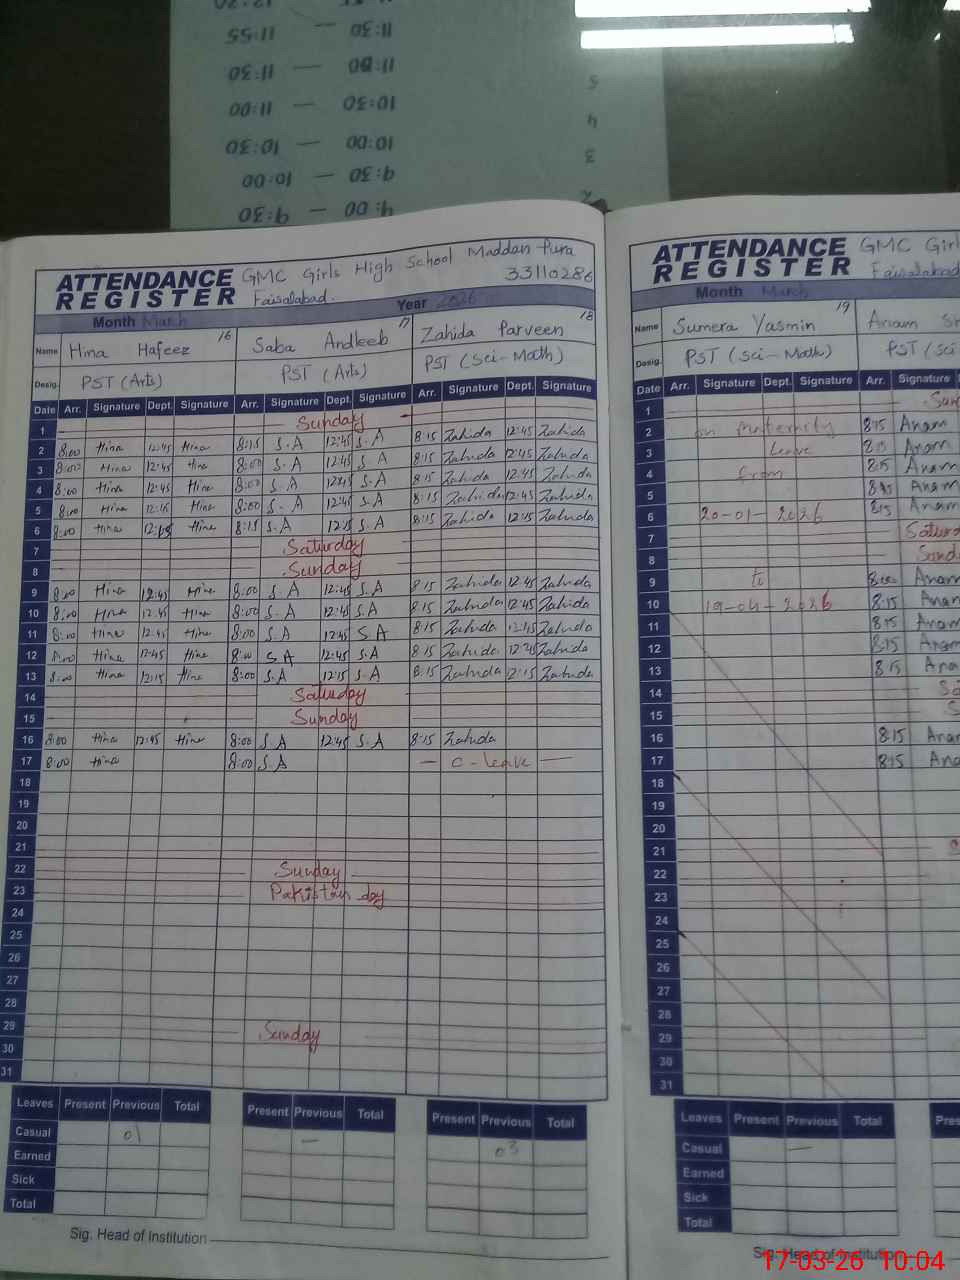 12:20
11:30 — 11:55
11:00 — 11:30
10:30 — 11:00
10:00 — 10:30
9:30 — 10:00
9:00 — 9:30
5
4
3
2
ATTENDANCE REGISTER GMC Girls High School Maddan Pura
Faisalabad. 33110286
Month March Year 2026
Name Hina Hafeez 16 Saba Andleeb 17 Zahida Parveen 18
Desig. PST (Arts) PST (Arts) PST (Sci-Math)
Date Arr. Signature Dept. Signature Arr. Signature Dept. Signature Arr. Signature Dept. Signature
1 Sunday
2 8:00 Hina 12:45 Hina 8:15 S.A 12:45 S.A 8:15 Zahida 12:45 Zahida
3 8:00 Hina 12:45 Hina 8:00 S.A 12:45 S.A 8:15 Zahida 12:45 Zahida
4 8:00 Hina 12:45 Hina 8:00 S.A 12:45 S.A 8:15 Zahida 12:45 Zahida
5 8:00 Hina Hina 8:00 S.A 12:45 S.A 8:15 Zahida 12:45 Zahida
6 8:00 Hina 12:15 Hina 8:15 S.A 12:15 S.A 8:15 Zahida 12:15 Zahida
7 Saturday
8 Sunday
9 8:00 Hina 12:45 Hina 8:00 S.A 12:45 S.A 8:15 Zahida 12:45 Zahida
10 8:00 Hina 12:45 Hina 8:00 S.A 12:45 S.A 8:15 Zahida 12:45 Zahida
11 8:00 Hina 12:45 Hina 8:00 S.A 12:45 S A 8:15 Zahida 12:45 Zahida
12 8:00 Hina 12:45 Hina 8:00 S A 12:45 S.A 8:15 Zahida 12:45 Zahida
13 8:00 Hina 12:15 Hina 8:00 S.A 12:15 S.A 8:15 Zahida 12:15 Zahida
14 Saturday
15 Sunday
16 8:00 Hina 12:45 Hina 8:00 S A 12:45 S.A 8:15 Zahida
17 8:00 Hina 8:00 S.A — C-leave —
18
19
20
21
22 Sunday
23 Pakistan day
24
25
26
27
28
29 Sunday
30
31
Leaves Present Previous Total Present Previous Total Present Previous Total
Casual 01 — 03
Earned
Sick
Total
Sig. Head of Institution
ATTENDANCE REGISTER GMC Girl
Faisalabad
Month March
Name Sumera Yasmin 19 Anam Sh
Desig. PST (Sci-Math) PST (Sci
Date Arr. Signature Dept. Signature Arr. Signature
1 Sun
2 on maternity 8:15 Anam
3 leave Anam
4 from 8:15 Anam
5 8:15 Anam
6 20-01-2026 8:15 Anam
7 Saturd
8 Sund
9 to 8:00 Anam
10 19-04-2026 8:15 Anam
11 8:15 Anam
12 8:15 Anam
13 8:15 Ana
14 Sa
15 S
16 8:15 Anam
17 8:15 Ana
18
19
20
21
22
23
24
25
26
27
28
29
30
31
Leaves Present Previous Total Pres
Casual —
Earned
Sick
Total
Sig. Head of Institution
17-03-26 10.04